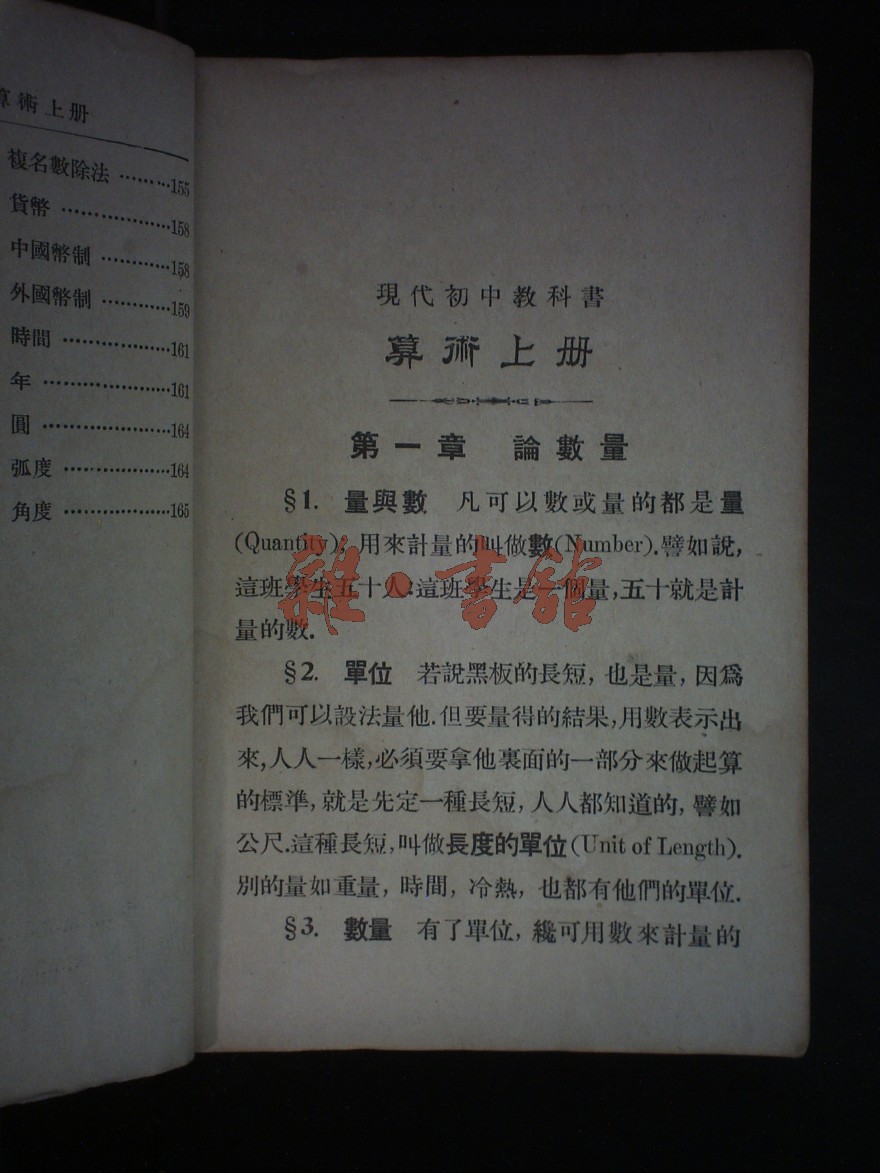 算術上册
複名數除法 ………155
貨幣 ………………158
中國幣制 …………158
外國幣制 …………159
時間 ………………161
年 …………………161
圓 …………………164
弧度 ………………164
角度 ………………165
現代初中教科書
算術上册
第一章 論數量
§1. 量與數 凡可以數或量的都是量
(Quantity); 用來計量的叫做數(Number).譬如說,
這班學生五十人:這班學生是一個量,五十就是計
量的數.
§2. 單位 若說黑板的長短, 也是量, 因爲
我們可以設法量他.但要量得的結果,用數表示出
來,人人一樣,必須要拿他裏面的一部分來做起算
的標準, 就是先定一種長短, 人人都知道的, 譬如
公尺.這種長短,叫做長度的單位(Unit of Length).
別的量如重量, 時間, 冷熱, 也都有他們的單位.
§3. 數量 有了單位, 纔可用數來計量的
雜·書館